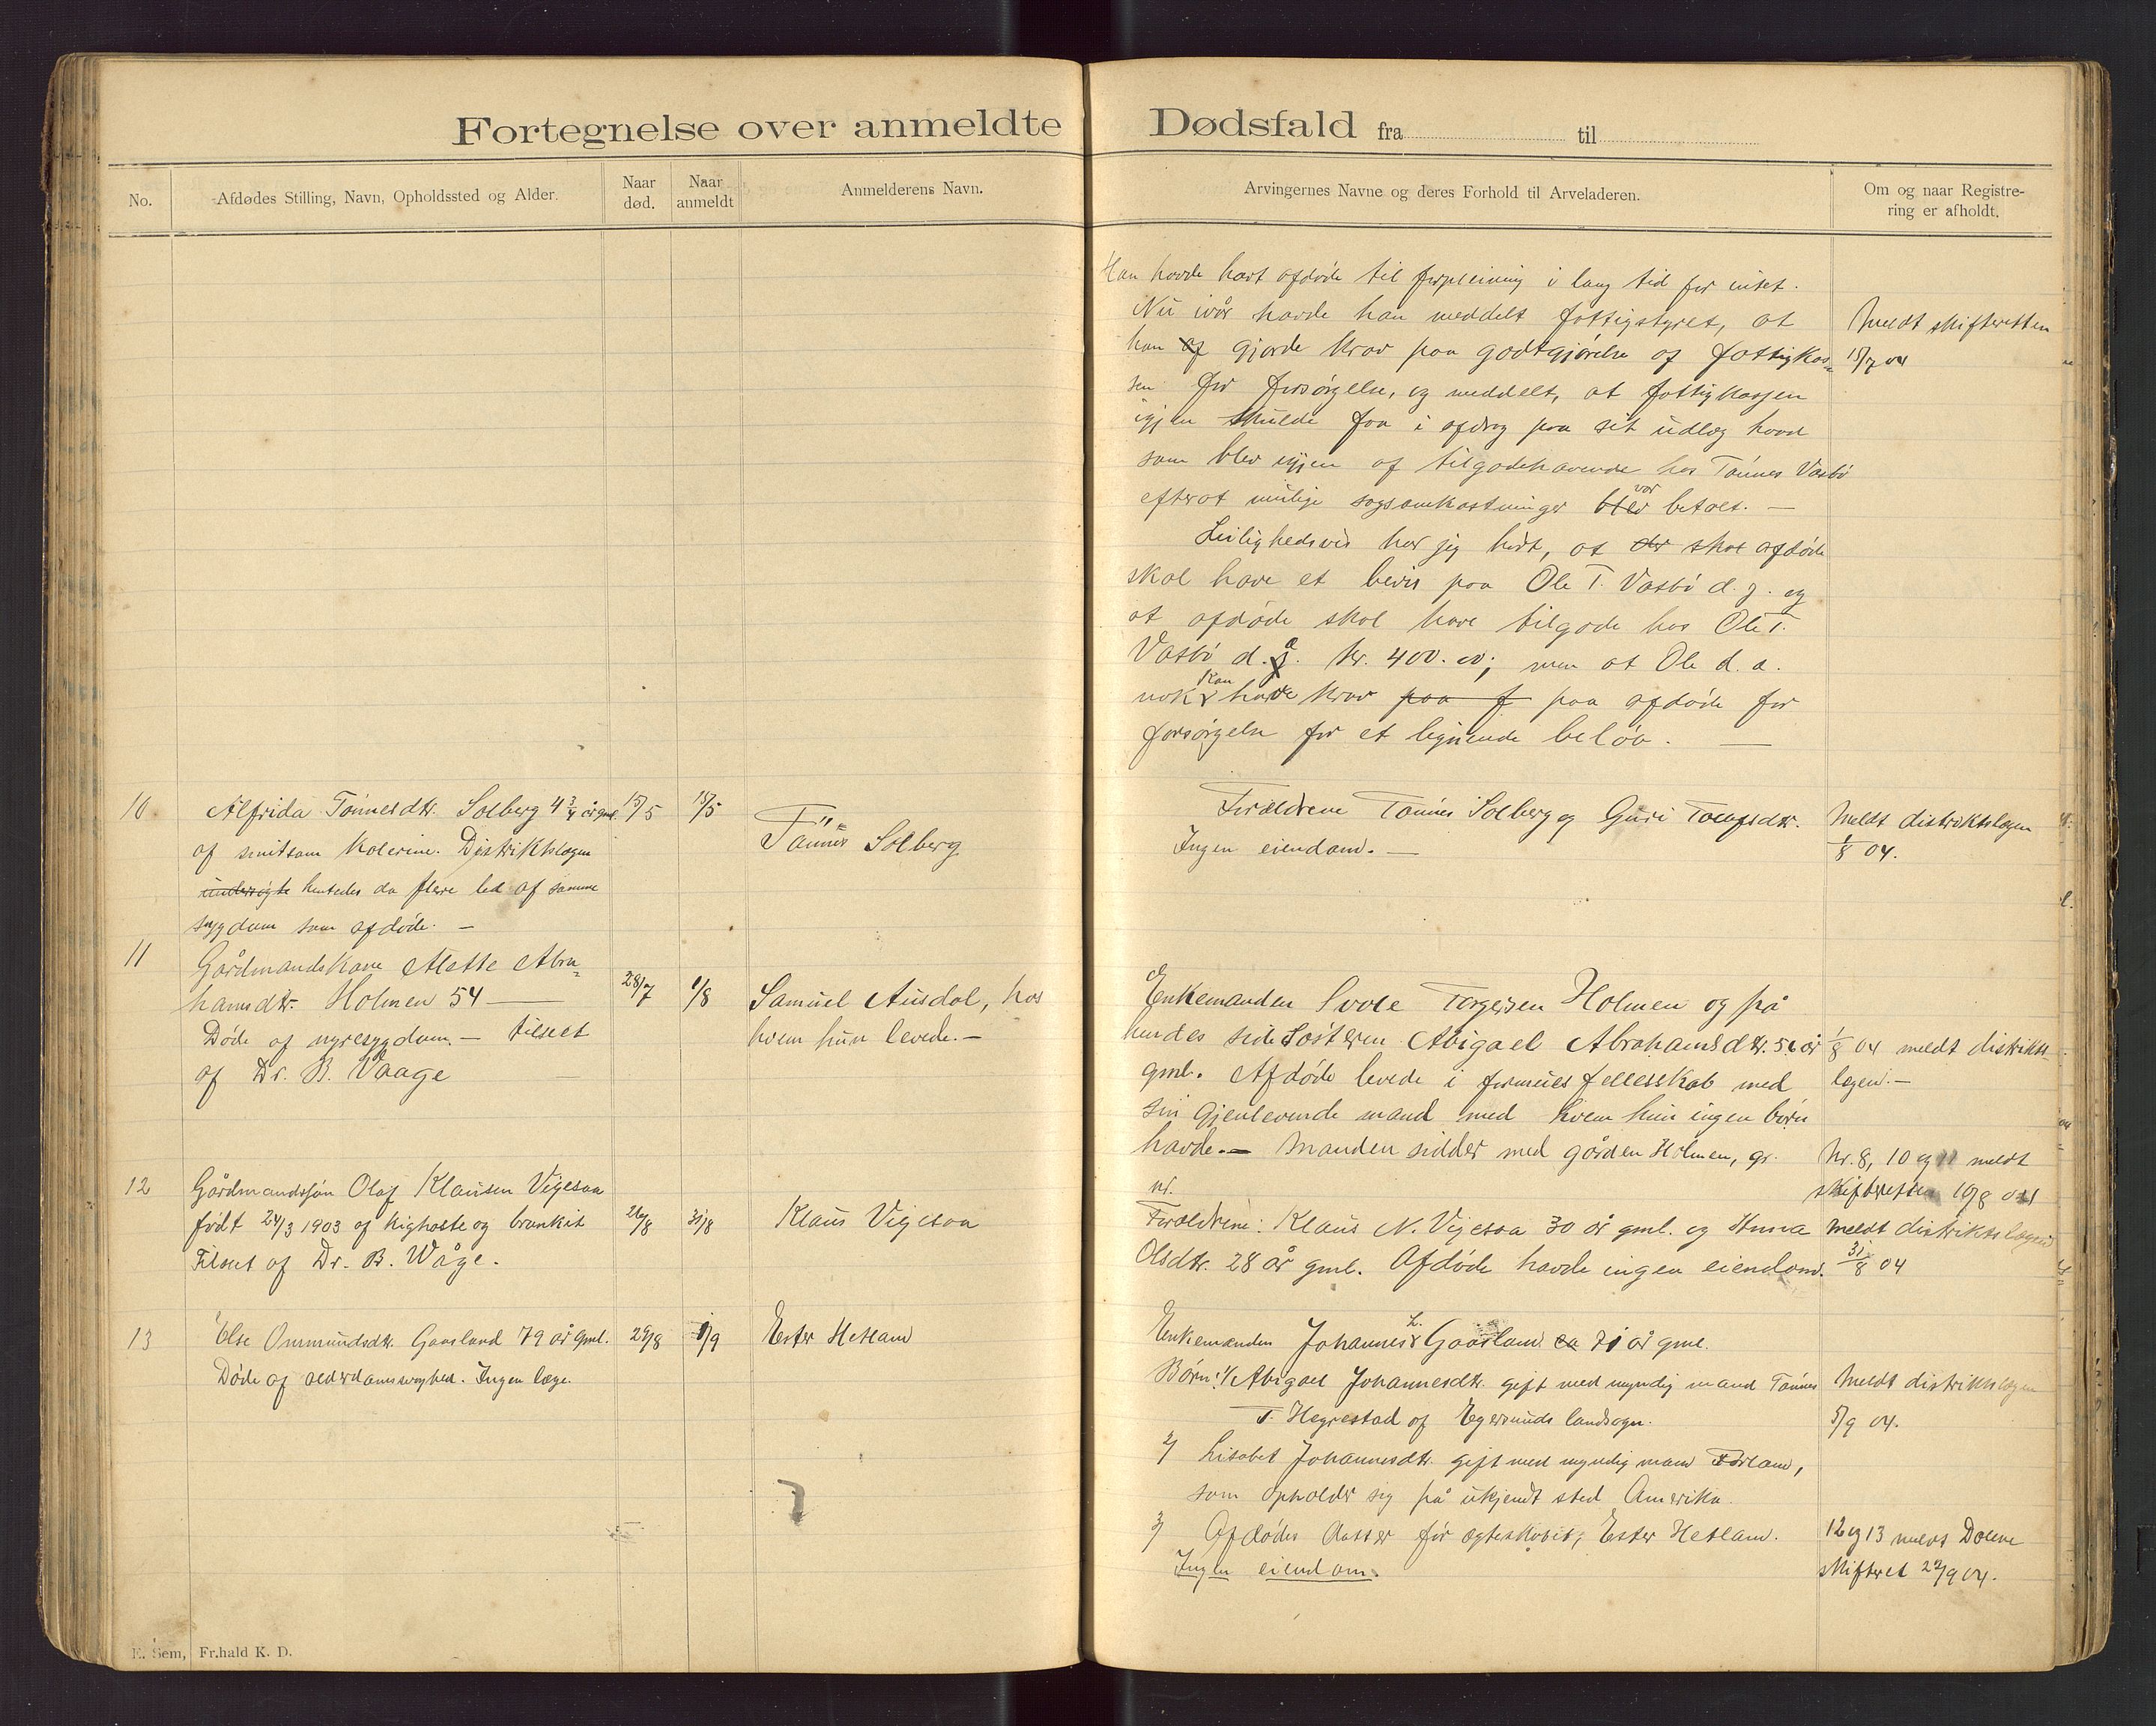 Fortegnelse over anmeldte Dødsfald fra til
No.
Afdødes Stilling, Navn, Opholdssted og Alder.
Naar død.
Naar anmeldt
Anmelderens Navn.
Arvingernes Navne og deres Forhold til Arveladeren.
Om og naar Registrering er afholdt.
Han havde havt afdøde til forpleining i lang tid for intet.
Nu ivår havde han meddelt fattigstyret, at
han af gjorde krav paa godtgjørelse af fattigkas=
sen for forsørgelse, og meddelt, at fattigkassen
igjen skulde faa i afdrag paa sit udlæg hvad
som blev igjen af tilgodehavende hos Tønnes Vasbø
efterat mulige sagsomkostninger blev var betalt. —
Leilighedsvis har jeg hørt, at der skal afdøde
skal have et bevis paa Ole T. Vasbø d. y. og
at afdøde skal have tilgode hos Ole T.
Vasbø d. a. kr. 400.00; men at Ole d. a.
nok kan have krav paa f paa afdøde for
forsørgelse for et lignende beløb. —
Meldt skifteretten
15/7 04
10
Alfrida Tønnesdtr. Solberg 4 3/4 år gml.
af smitsom kolerine. Distriktslægen
undersøgte hentedes da flere led af samme
sygdom som afdøde. —
15/5
15/5
Tønnes Solberg
Forældrene Tønnes Solberg og Guri Tollefsdtr.
Ingen eiendom. —
Meldt distriktslægen
1/8 04.
11
Gårdmandskone Mette Abra=
hamsdtr. Holmen 54 —
Døde af nyresygdom. — tilseet
af Dr. B. Vaage —
28/7
1/8
Samuel Ausdal, hos
hvem hun levede. —
Enkemanden Torgersen Holmen og på
hendes side Søsteren Abigael Abrahamsdtr. 56 år
gml. Afdøde levede i formuesfellesskab med
sin gjenlevende mand med hvem hun ingen børn
havde. — Manden sidder med gården Holmen, gr.
nr.
1/8 04 meldt distrikts
lægen. —
Nr. 8, 10 og 11 meldt
skifteretten 10/8 04
12
Gårdmandssøn Olaf Klausen Vigesaa
født 24/3 1903 af kighoste og bronkit
Tilseet af Dr. B. Wåge.
26/8
31/8
Klaus Vigesaa
Forældrene: Klaus N. Vigesaa 30 år gml. og Anna
Olsdtr. 28 år gml. Afdøde havde ingen eiendom.
meldt distriktslægen
31/8 04
13
Else Ommundsdtr. Gaasland 79 år gml.
Døde af alderdomssvaghed. Ingen læge.
29/8
1/9
Ester Hetland
Enkemanden Johannes L. Gaasland ca 71 år gml.
Børn: 1/ Abigael Johannesdtr. gift med myndig mand Tønnes
T. Hegrestad af Egersunds landsogn.
2/ Lisabet Johannesdtr. gift med myndig mand
som opholder sig på ukjendt sted Amerika.
3/ Afdødes datter før ægteskabet, Ester Hetland.
Ingen eiendom.
Meldt distriktslægen
5/9 04.
12 og 13 meldt Dalene
skifteret 22/9 04.
E. Sem, Fr.hald K. D.